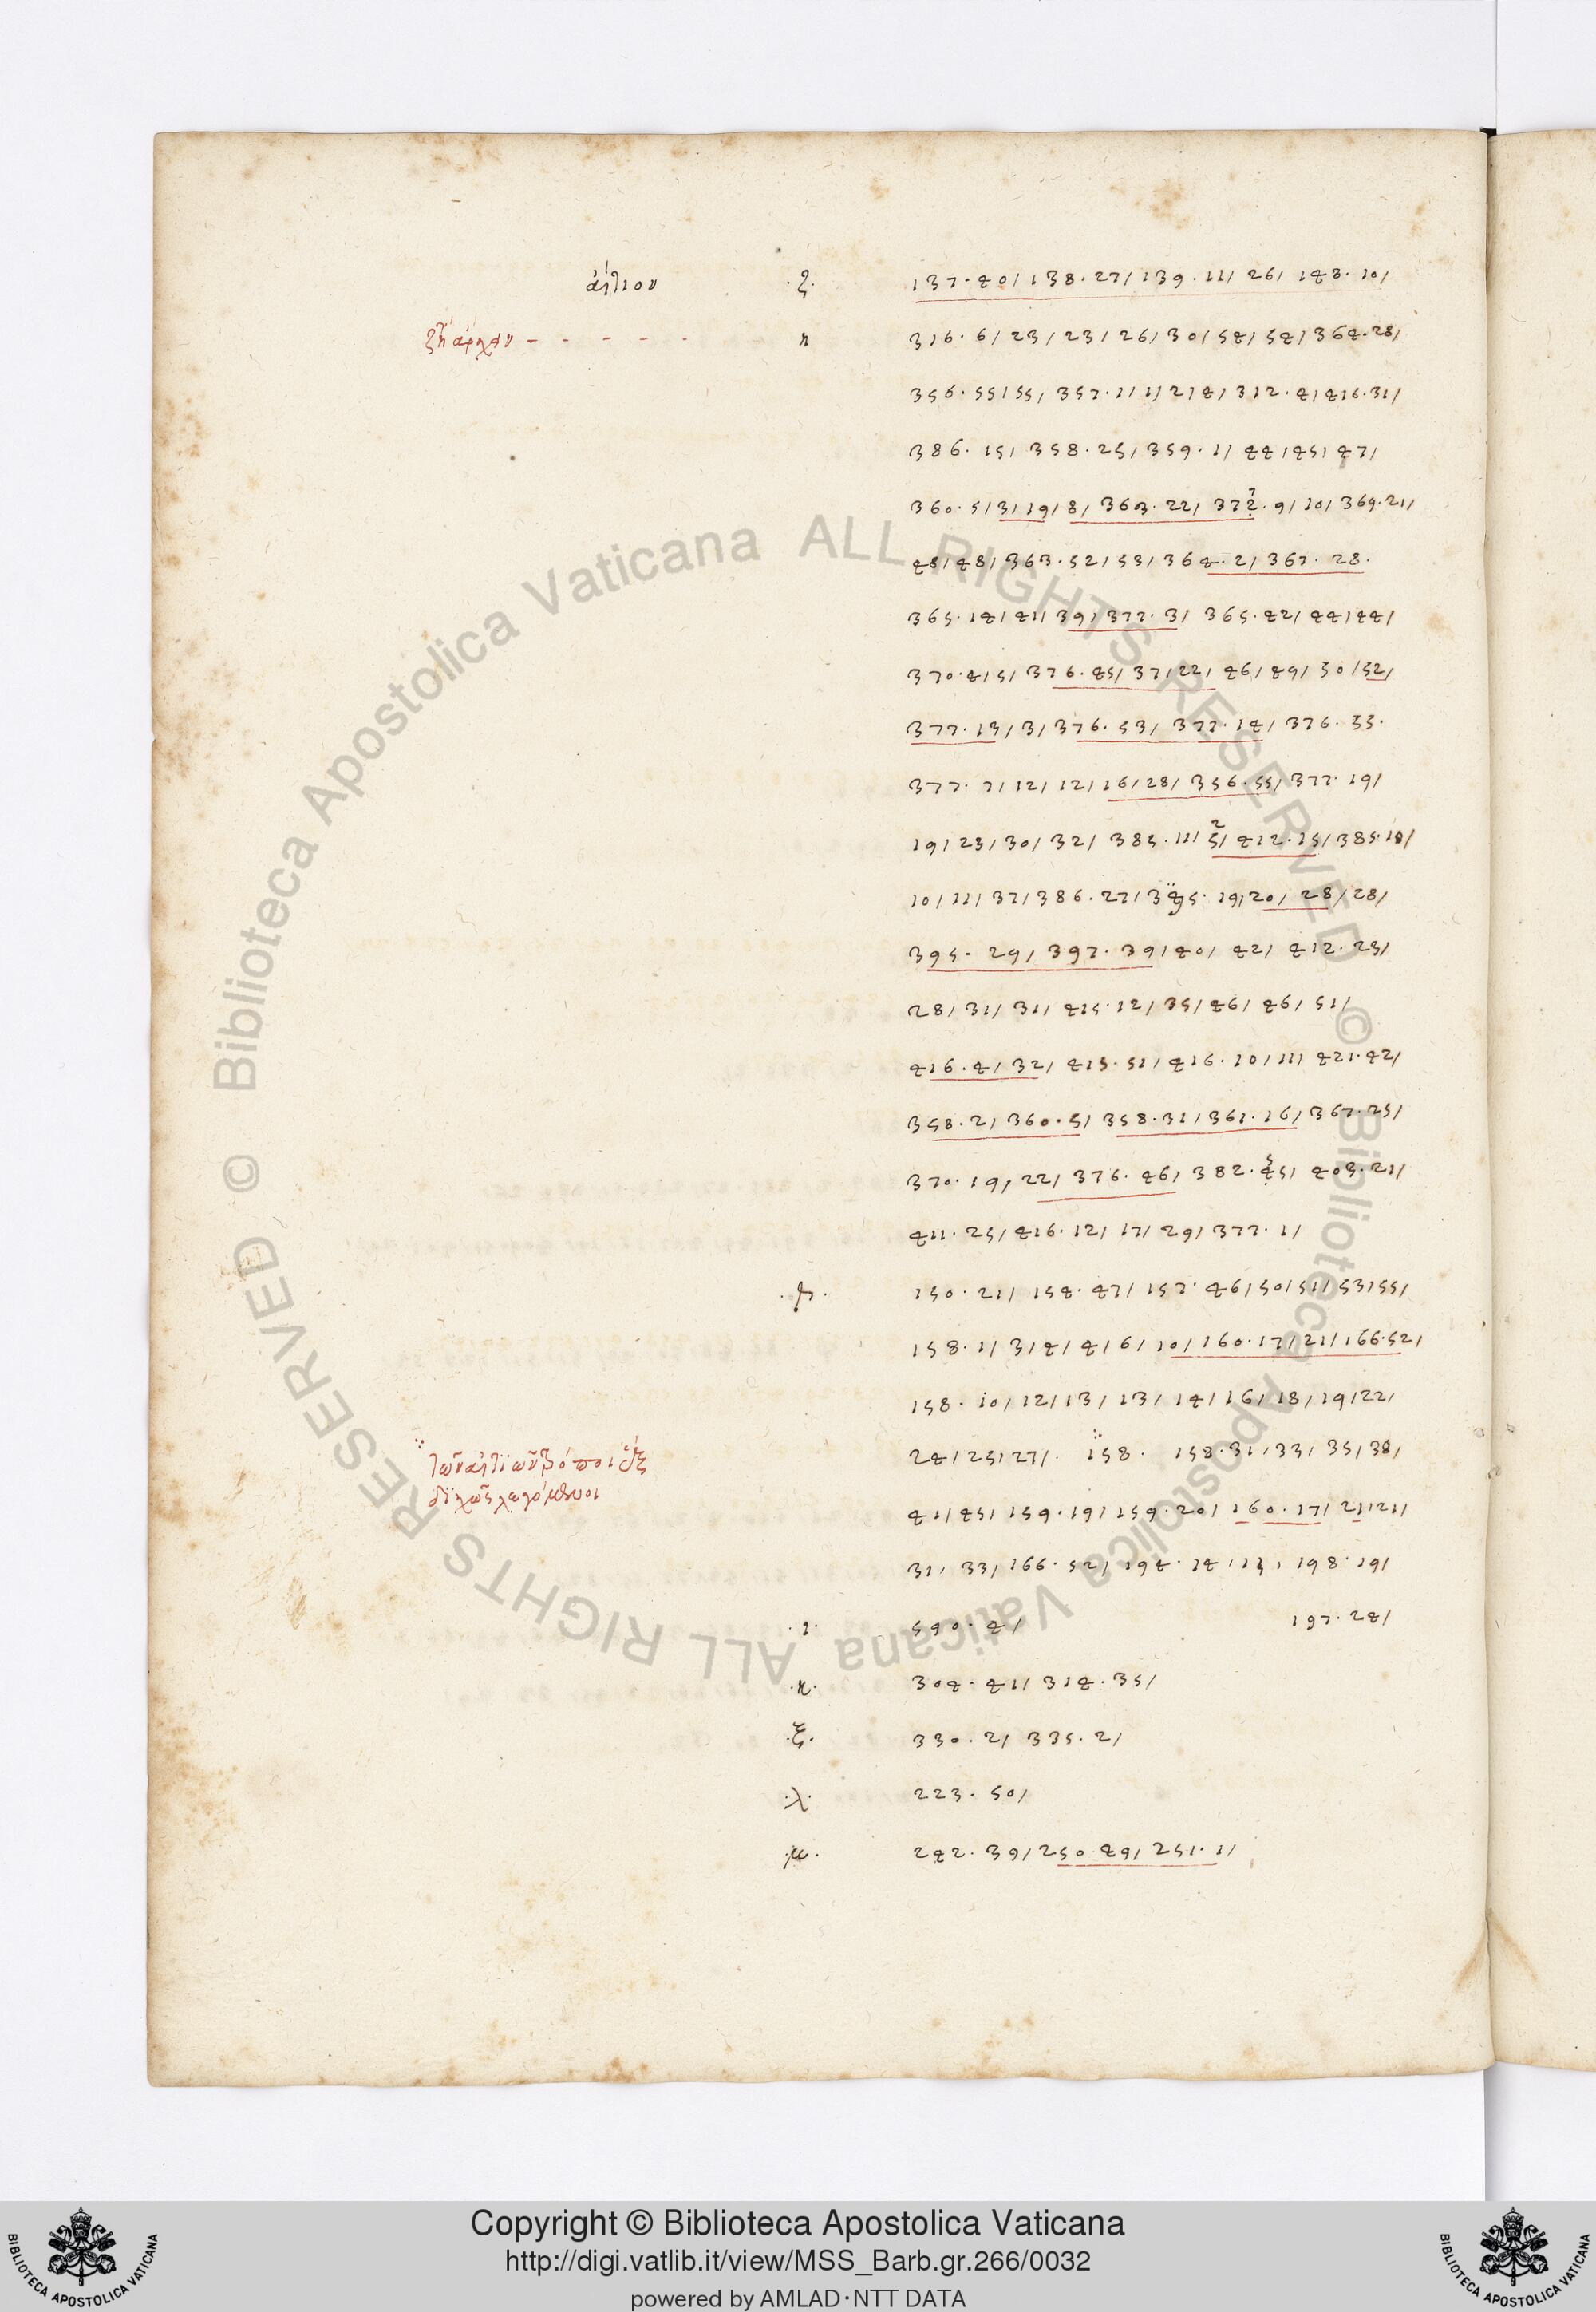 αἴτιον ·ζ· 137·40/138·27/139·11/26/148·10/
ζή ἀρχὴν - - - - - η 316·6/23/23/26/30/54/54/364·28/
356·55/55/357·1/1/2/4/312·4/416·31/
386·15/358·25/359·1/44/45/47/
360·5/3/19/8/363·22/372·9/10/369·21/
48/48/363·52/53/364·2/367·28·
365·14/41/39/377·3/365·42/44/44/
370·4/5/376·45/37/22/46/49/50/52/
377·13/3/376·53/377·14/376·55·
377·7/12/12/16/28/356·55/377·19/
19/23/30/32/385·11/5/412·15/385·10/
10/11/37/386·27/395·19/20/28/28/
395·29/397·39/40/42/412·23/
28/31/31/415·12/35/46/46/51/
416·4/32/415·51/416·10/11/421·42/
358·2/360·5/358·31/361·16/367·25/
370·19/22/376·46/382·45/403·21/
411·25/416·12/17/29/377·1/
150·21/154·47/157·46/50/51/53/55/
158·1/3/4/4/6/10/160·17/21/166·52/
158·10/12/13/13/14/16/18/19/22/
24/25/27/· 158· 158·31/33/35/38/
τῶν αἰτίων τρόποι ἓξ
διχῶς λεγόμενοι
41/45/159·19/159·20/160·17/21/21/
31/33/166·52/194·14/13/198·19/
·ι· 590·4/ 197·24/
·κ· 304·41/314·35/
·ξ· 330·2/335·2/
·λ· 223·50/
·μ· 242·39/250·49/251·1/
Copyright © Biblioteca Apostolica Vaticana
http://digi.vatlib.it/view/MSS_Barb.gr.266/0032
powered by AMLAD·NTT DATA